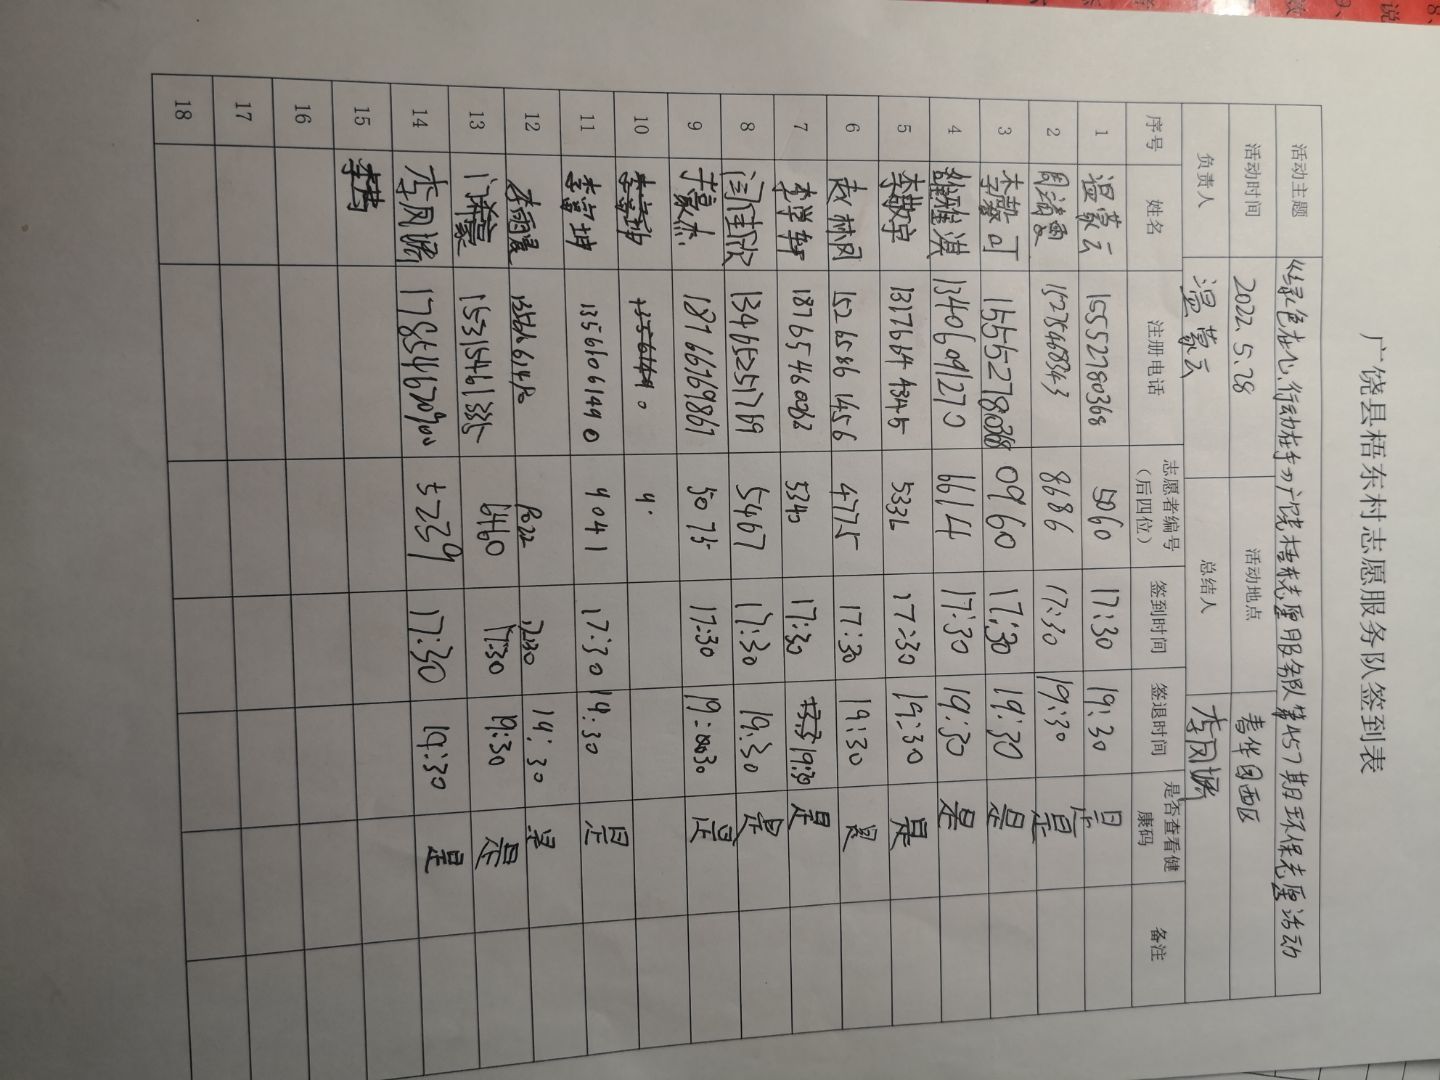 广饶县梧东村志愿服务队签到表
活动主题 "绿色在心,行动在手"广饶梧东志愿服务队第457期环保志愿活动
活动时间 2022.5.28 活动地点 春华园西区
负责人 温蒙云 总结人 李风娥
序号 姓名 注册电话 志愿者编号(后四位) 签到时间 签退时间 是否查看健康码 备注
1 温蒙云 15552780368 5060 17:30 19:30 是
2 8686 17:30 19:30 是
3 15552780368 0960 17:30 19:30 是
4 13406091270 6614 17:30 19:30 是
5 李敬宇 17:30 19:30 是
6 赵林风 15265861456 4775 17:30 19:30 是
7 李学轩 18765460262 5340 17:30 19:30 是
8 闫佳欣 13465251769 5467 17:30 19:30 是
9 18766769867 5075 17:30 是
10
11 13561061490 9041 17:30 19:30 是
12 李雨晨 17:30 19:30 是
13 15315461335 6460 17:30 19:30 是
14 5239 17:30 19:30 是
15
16
17
18